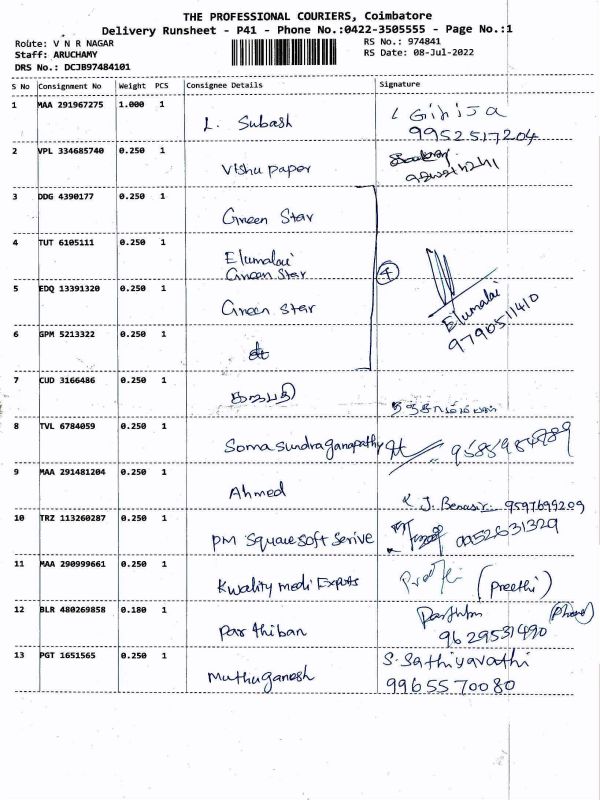 THE PROFESSIONAL COURIERS, Coimbatore
Delivery Runsheet - P41 - Phone No.:0422-3505555 - Page No.:1
Route: V N R NAGAR
RS No.: 974841
Staff: ARUCHAMY
RS Date: 08-Jul-2022
DRS No.: DCJB97484101
S No Consignment No Weight PCS Consignee Details Signature
1 MAA 291967275 1.000 1 L. Subash L Girija
9952517204
2 VPL 334685740 0.250 1 Vishu paper
3 DDG 4390177 0.250 1 Green Star
4 TUT 6105111 0.250 1 Elumalai
Green Star
4
5 EDQ 13391320 0.250 1 Green Star
Elumalai
9790511410
6 GPM 5213322 0.250 1
7 CUD 3166486 0.250 1
8 TVL 6784059 0.250 1 Somasundraganapathy
9 MAA 291481204 0.250 1 Ahmed J. Benasir 9597699209
10 TRZ 113260287 0.250 1 PM Squaresoft Serive 9952631329
11 MAA 290999661 0.250 1 Kwality medi Expots Preethi (Preethi)
12 BLR 480269858 0.180 1 Parthiban (Phone)
9629531490
13 PGT 1651565 0.250 1 Muthuganesh S. Sathiyavathi
9965570080